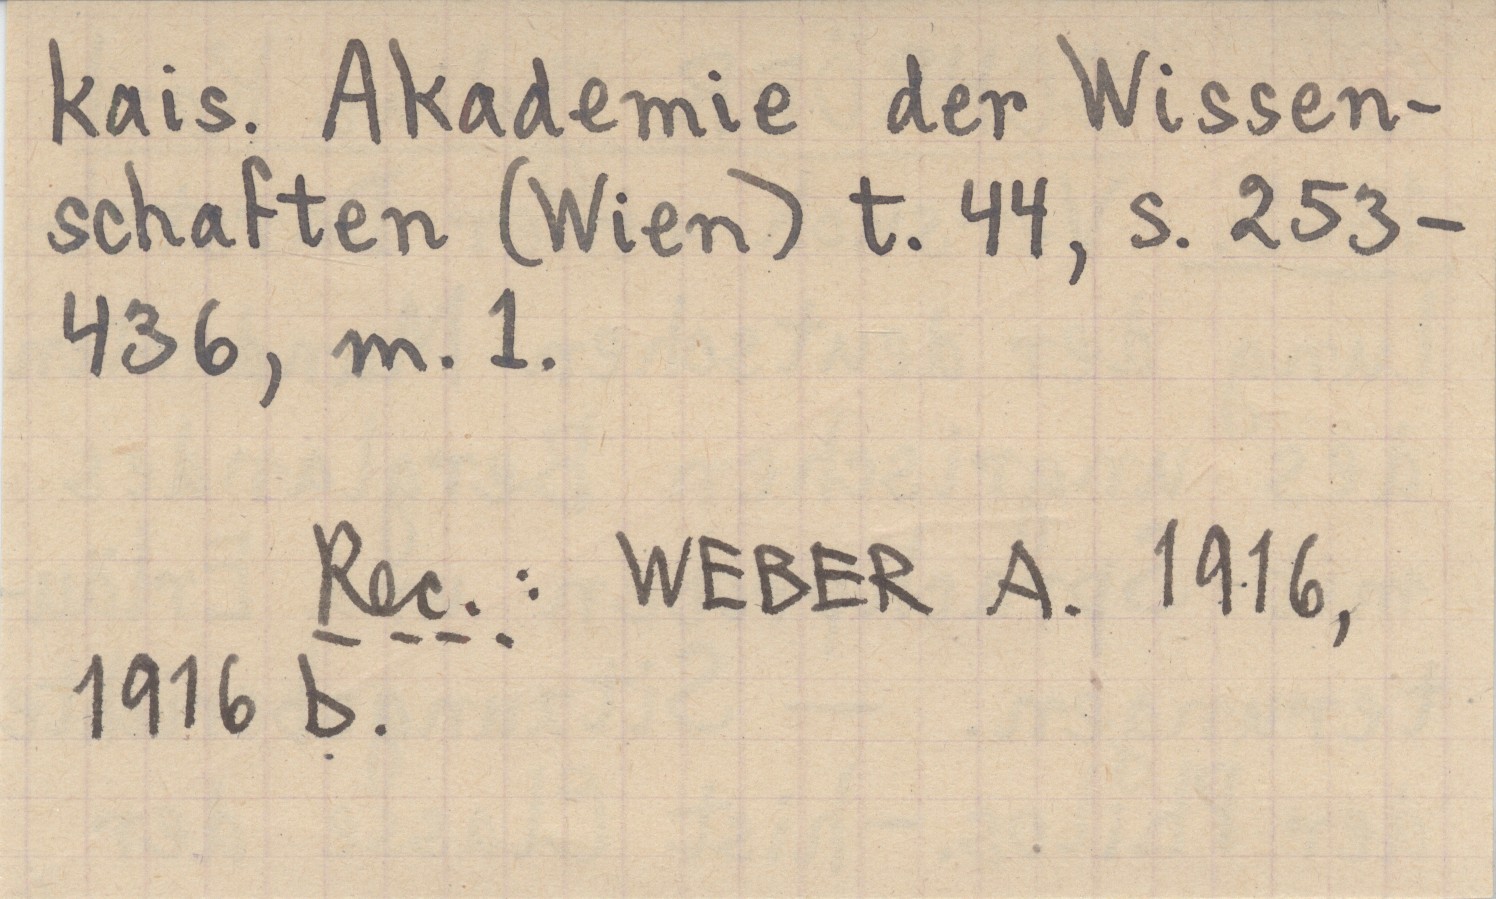 kais. Akademie der Wissen-
schaften (Wien) t. 44, s. 253-
436, m. 1.
Rec.: WEBER A. 1916,
1916 b.